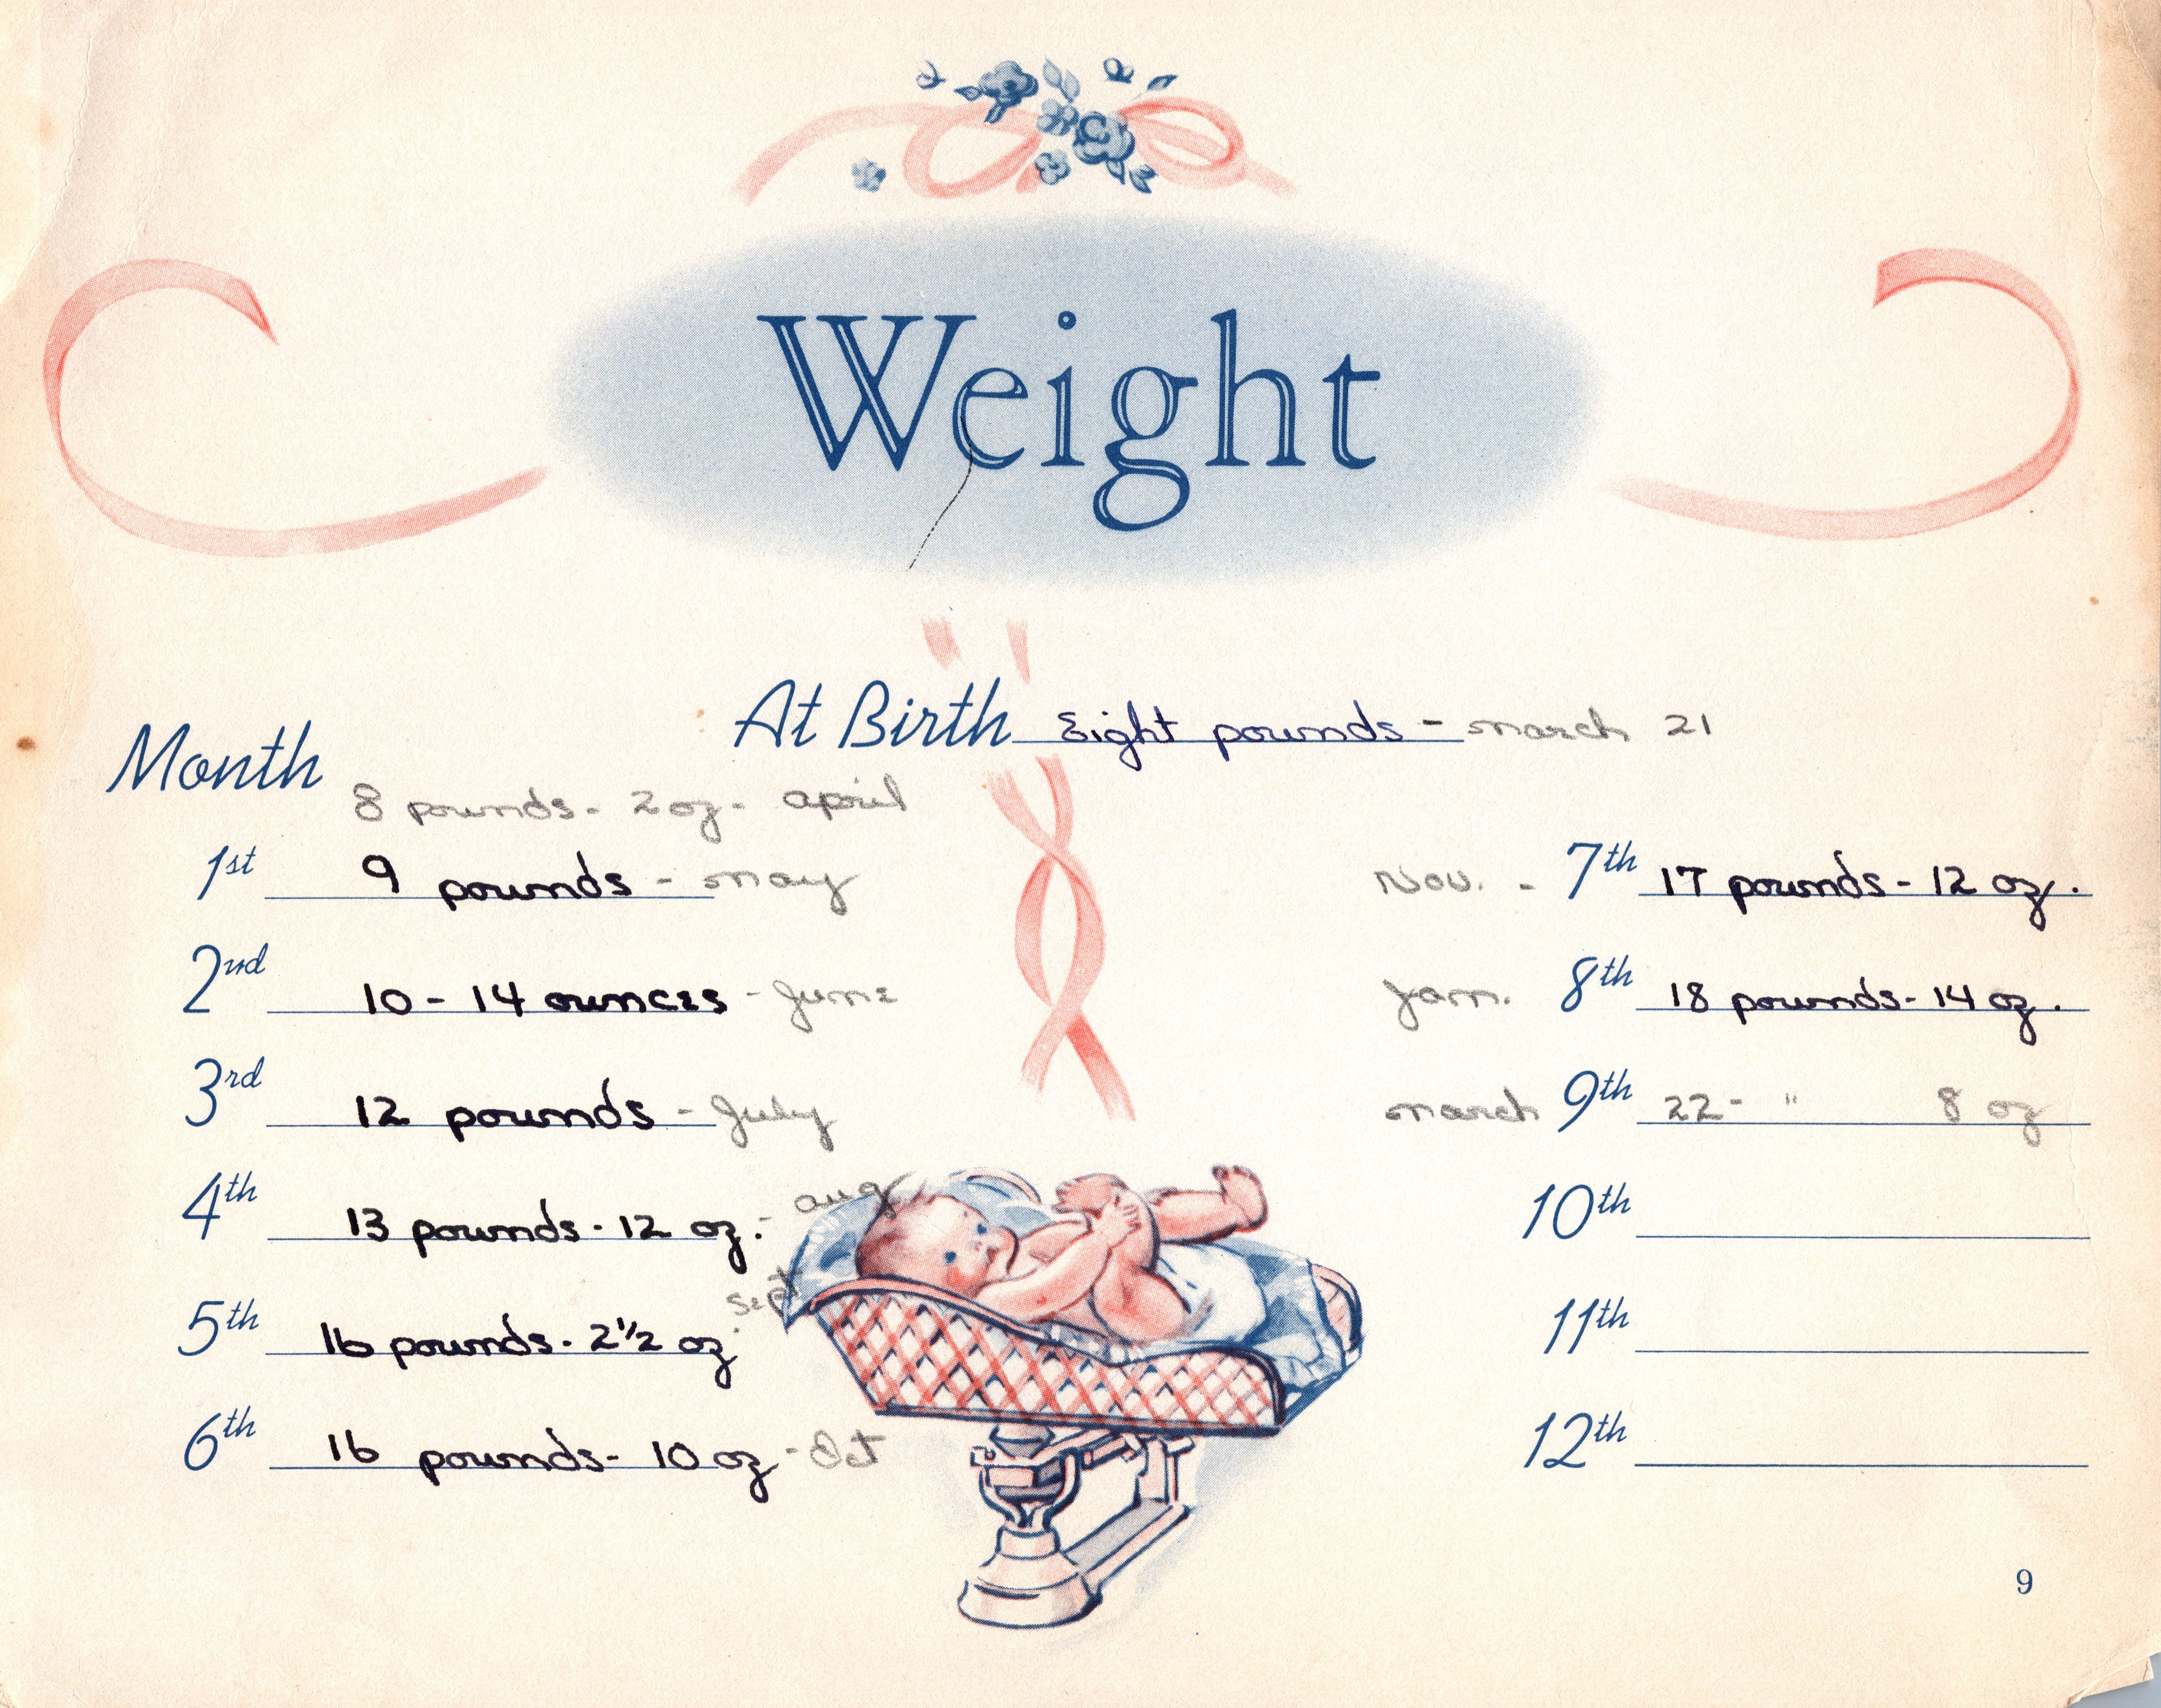 Weight
At Birth Eight pounds - march 21
Month
8 pounds - 2 oz - april
1st 9 pounds - may
2nd 10 - 14 ounces - June
3rd 12 pounds - July
4th 13 pounds - 12 oz. - aug
5th 16 pounds - 2 1/2 oz. sept
6th 16 pounds - 10 oz - Oct
Nov. - 7th 17 pounds - 12 oz.
Jan. 8th 18 pounds - 14 oz.
march 9th 22 - " 8 oz
10th
11th
12th
9